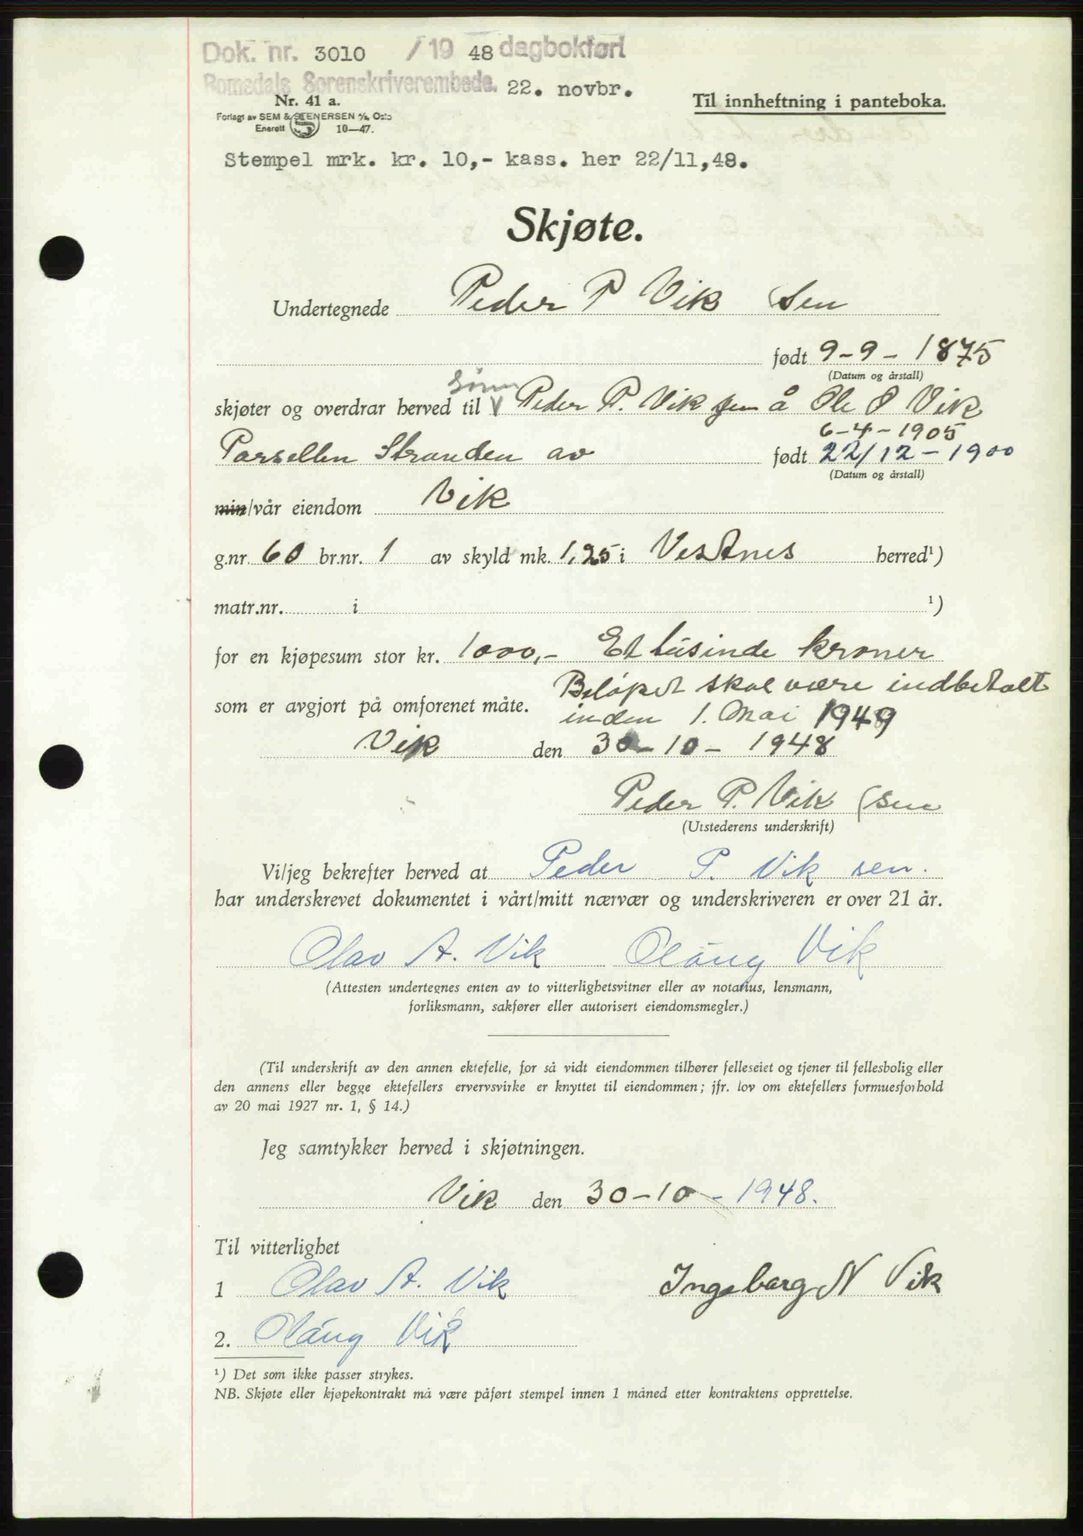 Dok. nr. 3010 /19 48 dagbokført
Romsdals Sorenskriverembede. 22. novbr.
Nr. 41 a.
Forlagt av SEM & STENERSEN A/S, Oslo
Enerett S 10—47.
Til innheftning i panteboka.
Stempel mrk. kr. 10,- kass. her 22/11,48.
Skjøte.
Undertegnede Peder P Vik (sen
født 9-9-1875
(Datum og årstall)
Sønn
skjøter og overdrar herved til V Peder P. Vik jun å Ole P Vik
6-4-1905
Parsellen Stranden av født 22/12-1900
(Datum og årstall)
min/vår eiendom Vik
g.nr. 60 br.nr. 1 av skyld mk. 1,25 i Vestnes herred¹)
matr.nr. i ¹)
for en kjøpesum stor kr. 1000,- Et tusinde kroner
som er avgjort på omforenet måte. Beløpet skal være indbetalt
inden 1. Mai 1949
Vik den 30-10-1948
Peder P. Vik (sen
(Utstederens underskrift)
Vi/jeg bekrefter herved at Peder P. Vik sen.
har underskrevet dokumentet i vårt/mitt nærvær og underskriveren er over 21 år.
Olav A. Vik Olaug Vik
(Attesten undertegnes enten av to vitterlighetsvitner eller av notarius, lensmann,
forliksmann, sakfører eller autorisert eiendomsmegler.)
(Til underskrift av den annen ektefelle, for så vidt eiendommen tilhører felleseiet og tjener til fellesbolig eller
den annens eller begge ektefellers ervervsvirke er knyttet til eiendommen; jfr. lov om ektefellers formuesforhold
av 20 mai 1927 nr. 1, § 14.)
Jeg samtykker herved i skjøtningen.
Vik den 30-10-1948.
Til vitterlighet
1 Olav A. Vik Ingebarg N Vik
2. Olaug Vik
¹) Det som ikke passer strykes.
NB. Skjøte eller kjøpekontrakt må være påført stempel innen 1 måned etter kontraktens opprettelse.